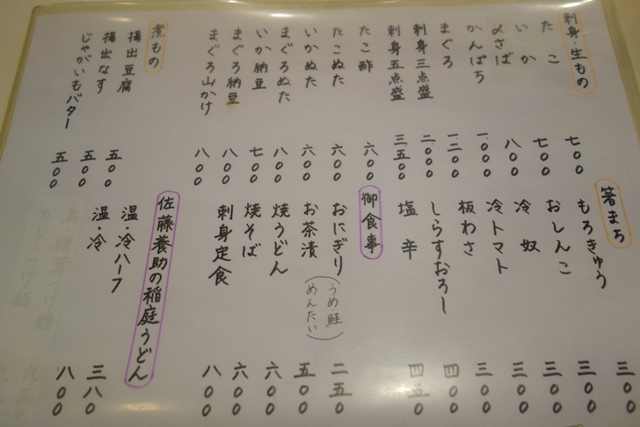 刺身・生もの
たこ 七〇〇
いか 七〇〇
〆さば 八〇〇
かんぱち 一〇〇〇
まぐろ 一二〇〇
刺身三点盛 二〇〇〇
刺身五点盛 三五〇〇
たこ酢 六〇〇
たこぬた 六〇〇
いかぬた 六〇〇
まぐろぬた 八〇〇
いか納豆 七〇〇
まぐろ納豆 八〇〇
まぐろ山かけ 八〇〇
煮もの
揚出豆腐 五〇〇
揚出なす 五〇〇
じゃがいもバター 五〇〇
箸まち
もろきゅう 三〇〇
おしんこ 三〇〇
冷奴 三〇〇
冷トマト 三〇〇
板わさ 三〇〇
しらすおろし 四〇〇
塩辛 四五〇
御食事
おにぎり(うめ 鮭 めんたい) 二五〇
お茶漬 五〇〇
焼うどん 六〇〇
焼そば 六〇〇
刺身定食 八〇〇
佐藤養助の稲庭うどん
温・冷ハーフ 三八〇
温・冷 八〇〇